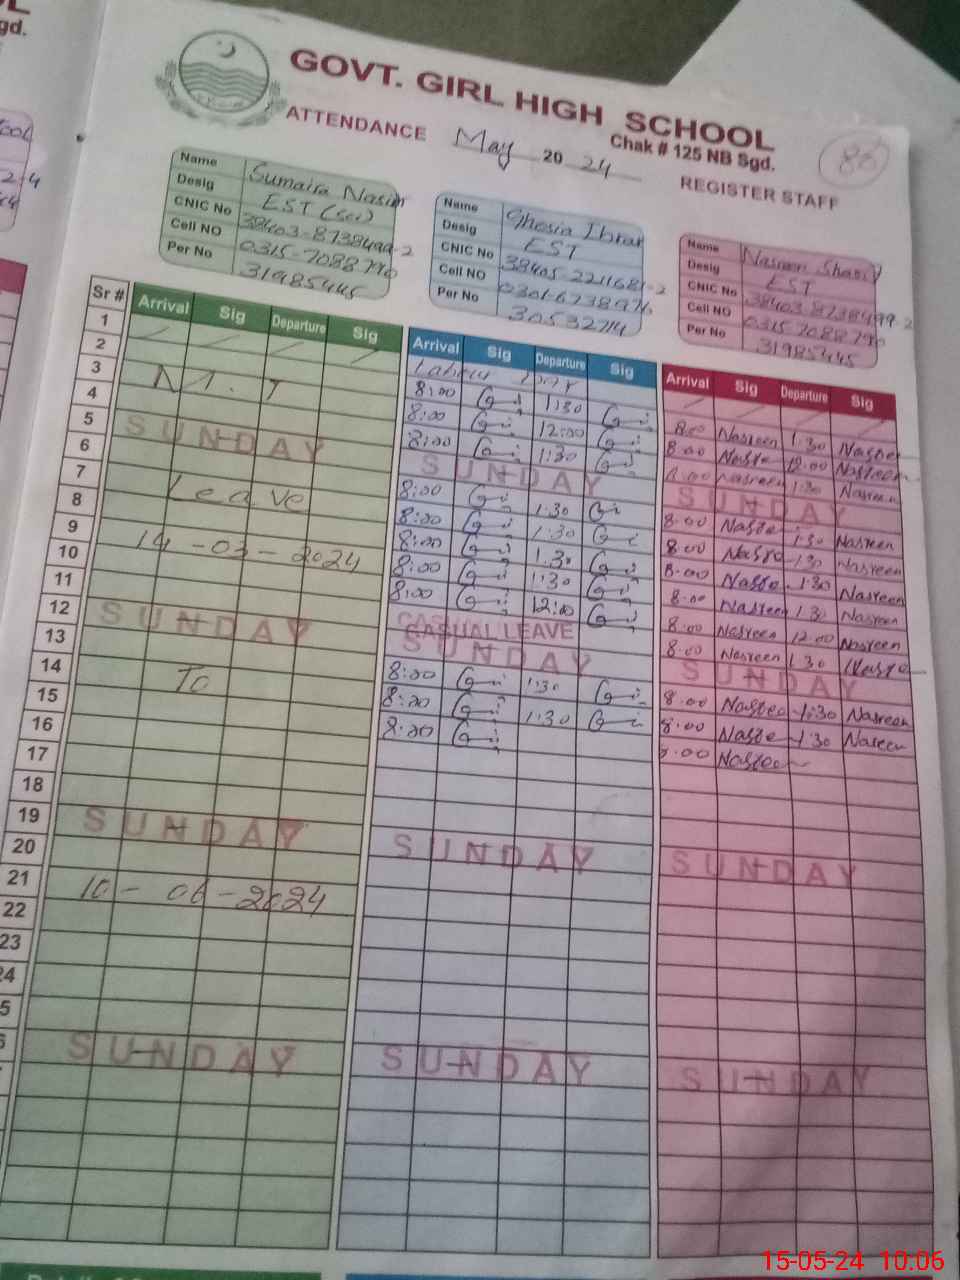 GOVT. GIRL HIGH SCHOOL
Chak # 125 NB Sgd.
ATTENDANCE May 20 24 REGISTER STAFF
86
Name Sumaira Nasir
Desig EST (sci)
CNIC No 38403-8738499-2
Cell NO 0315-7088790
Per No 31985445
Name Ghosia Ibrar
Desig EST
CNIC No 38405-2211681-2
Cell NO 0301-6738976
Per No 30532714
Name Nasreen
Desig EST
CNIC No 38403 8738499 2
Cell NO 0315 7088790
Per No 31985445
Sr #
1
2
3
4
5
6
7
8
9
10
11
12
13
14
15
16
17
18
19
20
21
22
23
24
5
6
Arrival Sig Departure Sig
M.T
SUNDAY
Leave
14-03-2024
SUNDAY
To
SUNDAY
10-06-2024
SUNDAY
Arrival Sig Departure Sig
Labour Day
8:00 1:30
8:00 12:00
8:00 1:30
SUNDAY
8:00 1:30
8:00 1:30
8:00 1:30
8:00 1:30
8:00 12:00
CASUAL LEAVE
SUNDAY
8:00 1:30
8:00 1:30
8:00
SUNDAY
SUNDAY
Arrival Sig Departure Sig
8.00 Nasreen 1.30
8.00 12.00 Nasreen
8.00 Nasreen 1.30 Nasreen
SUNDAY
8.00 1.30 Nasreen
8.00 1.30 Nasreen
8.00 1.30 Nasreen
8.00 Nasreen 1.30 Nasreen
8.00 Nasreen 12.00 Nasreen
8.00 Nasreen 1.30
SUNDAY
8.00 1.30 Nasreen
8.00 1.30 Nasreen
8.00
SUNDAY
SUNDAY
15-05-24 10:06